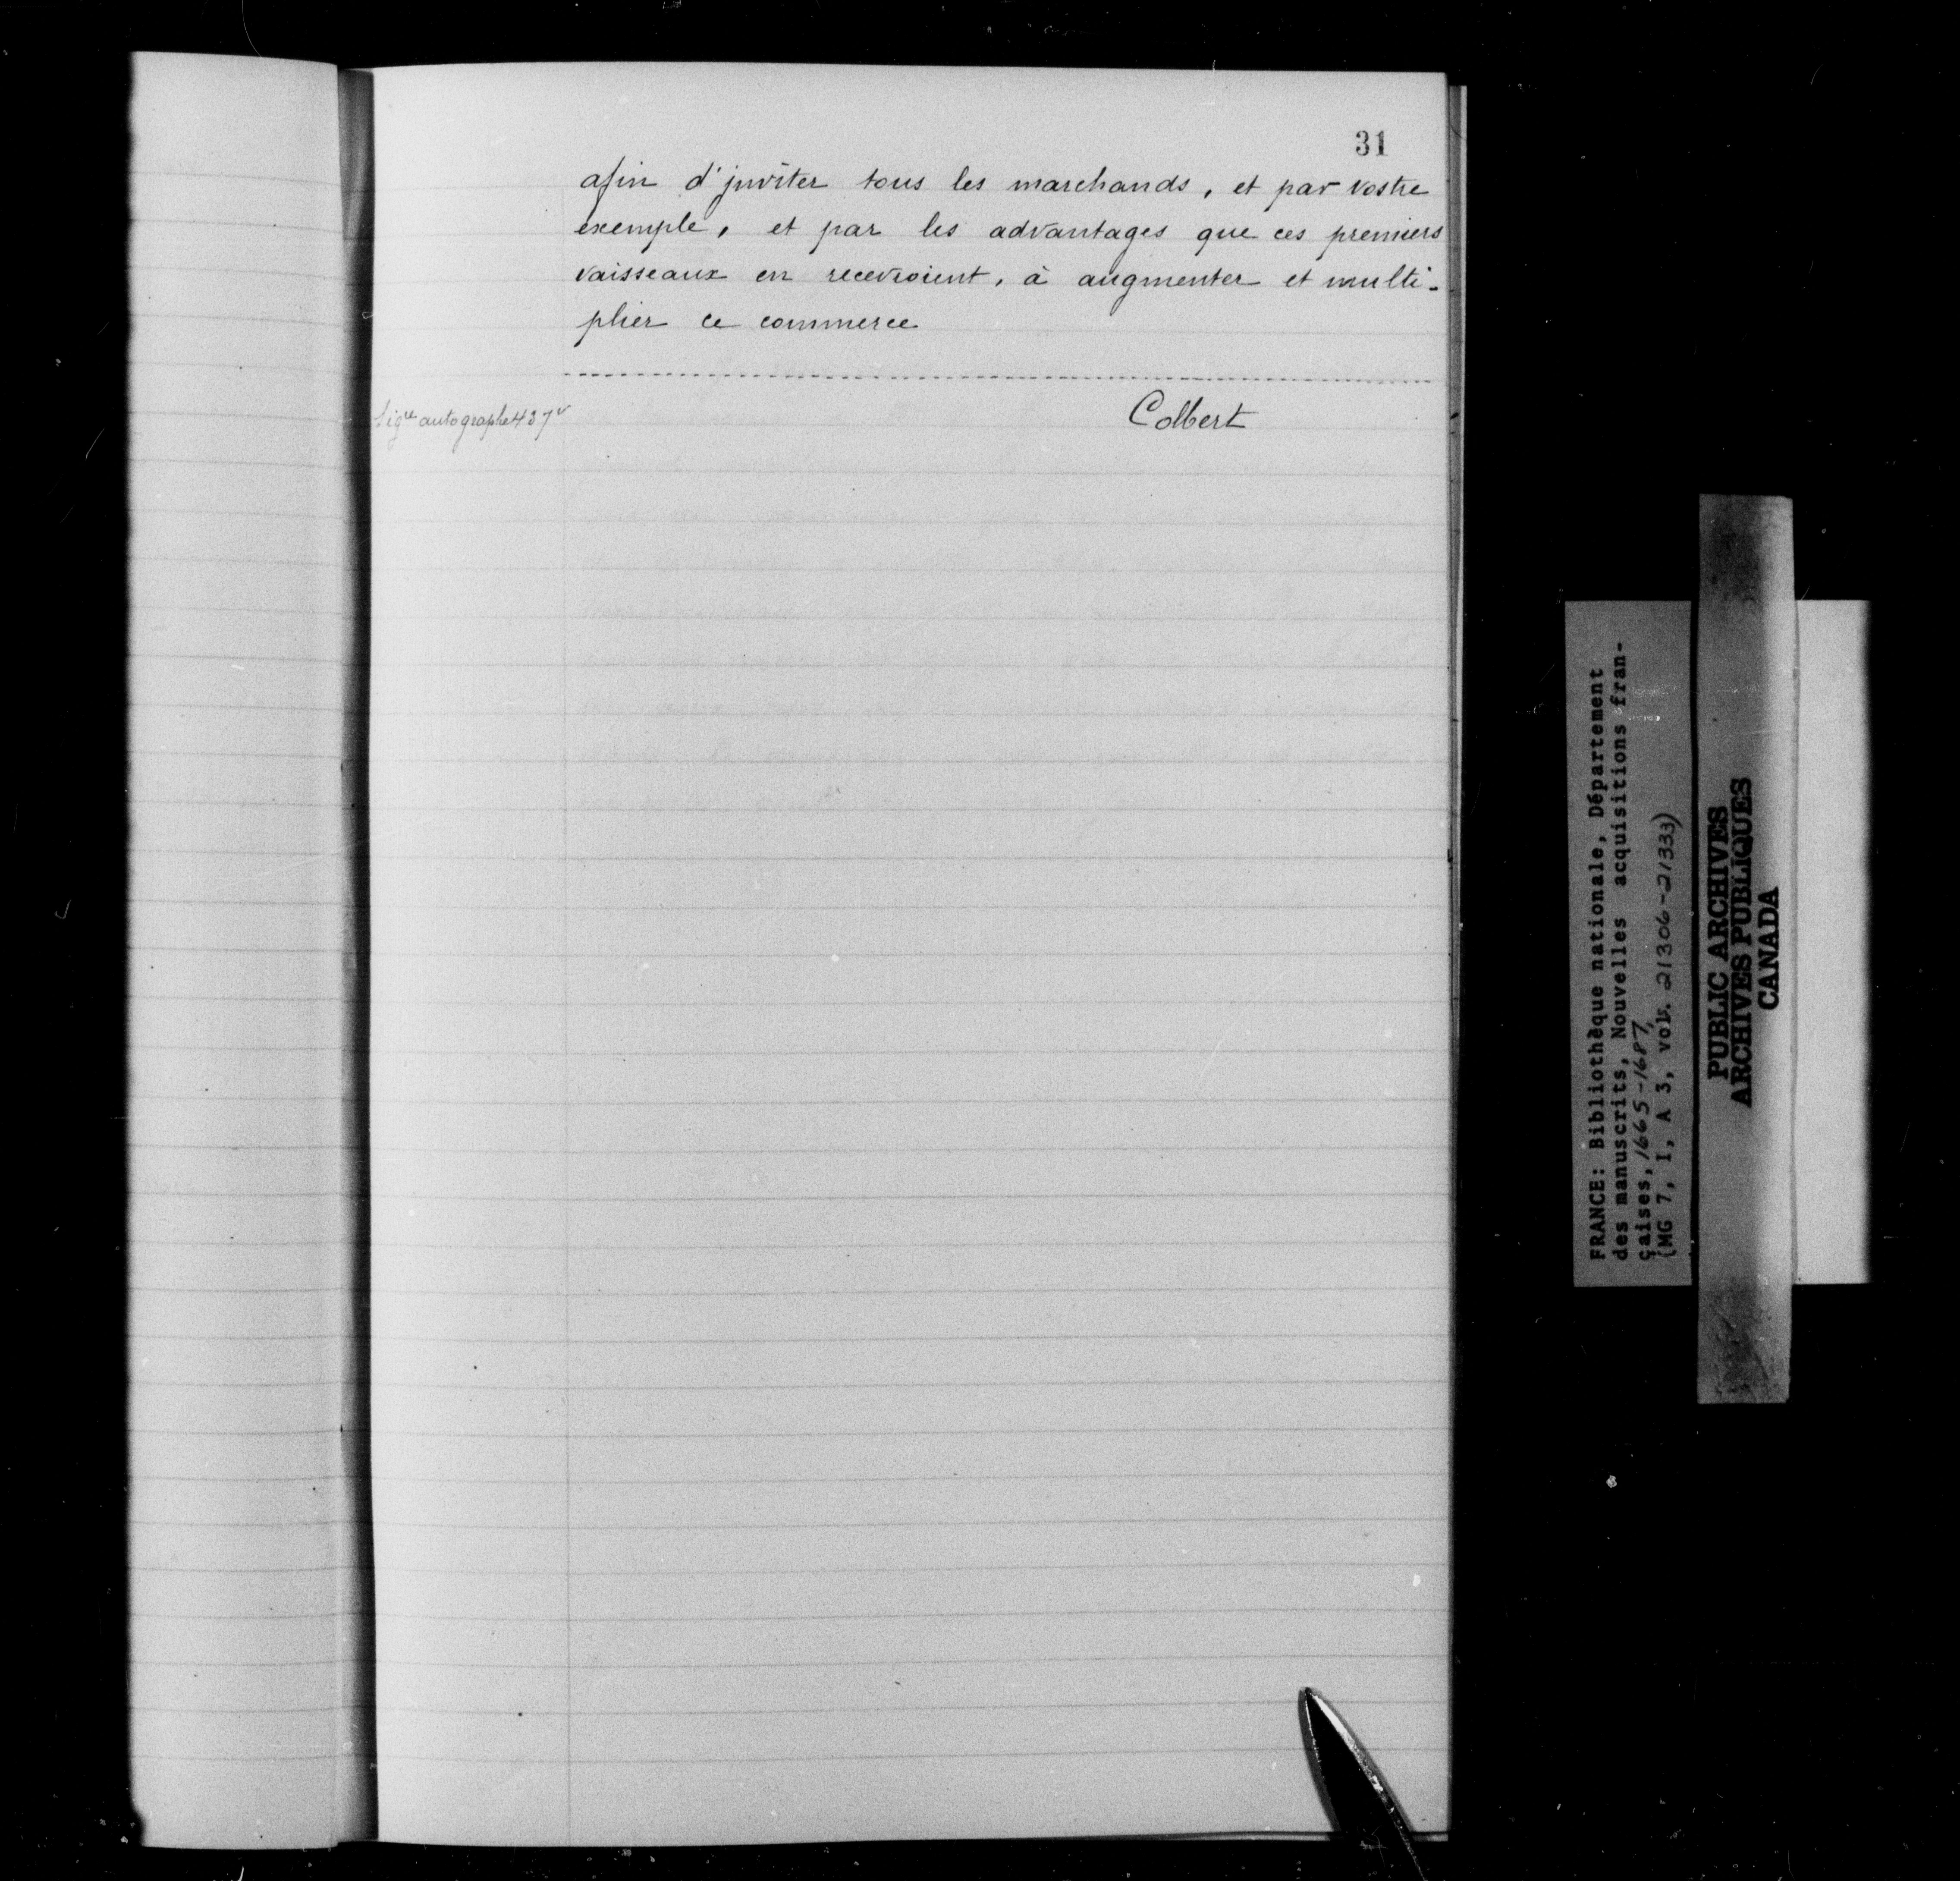 31
afin d'jnviter tous les marchands, et par vostre
exemple, et par les advantages que ces premiers
vaisseaux en recevroient, à augmenter et multi-
plier ce commerce
Sigre autographe 437v
Colbert
FRANCE: Bibliothèque nationale, Département
des manuscrits, Nouvelles acquisitions fran-
çaises, 1665-1687,
(MG 7, I, A 3, vol. 21306-21333)
PUBLIC ARCHIVES
ARCHIVES PUBLIQUES
CANADA